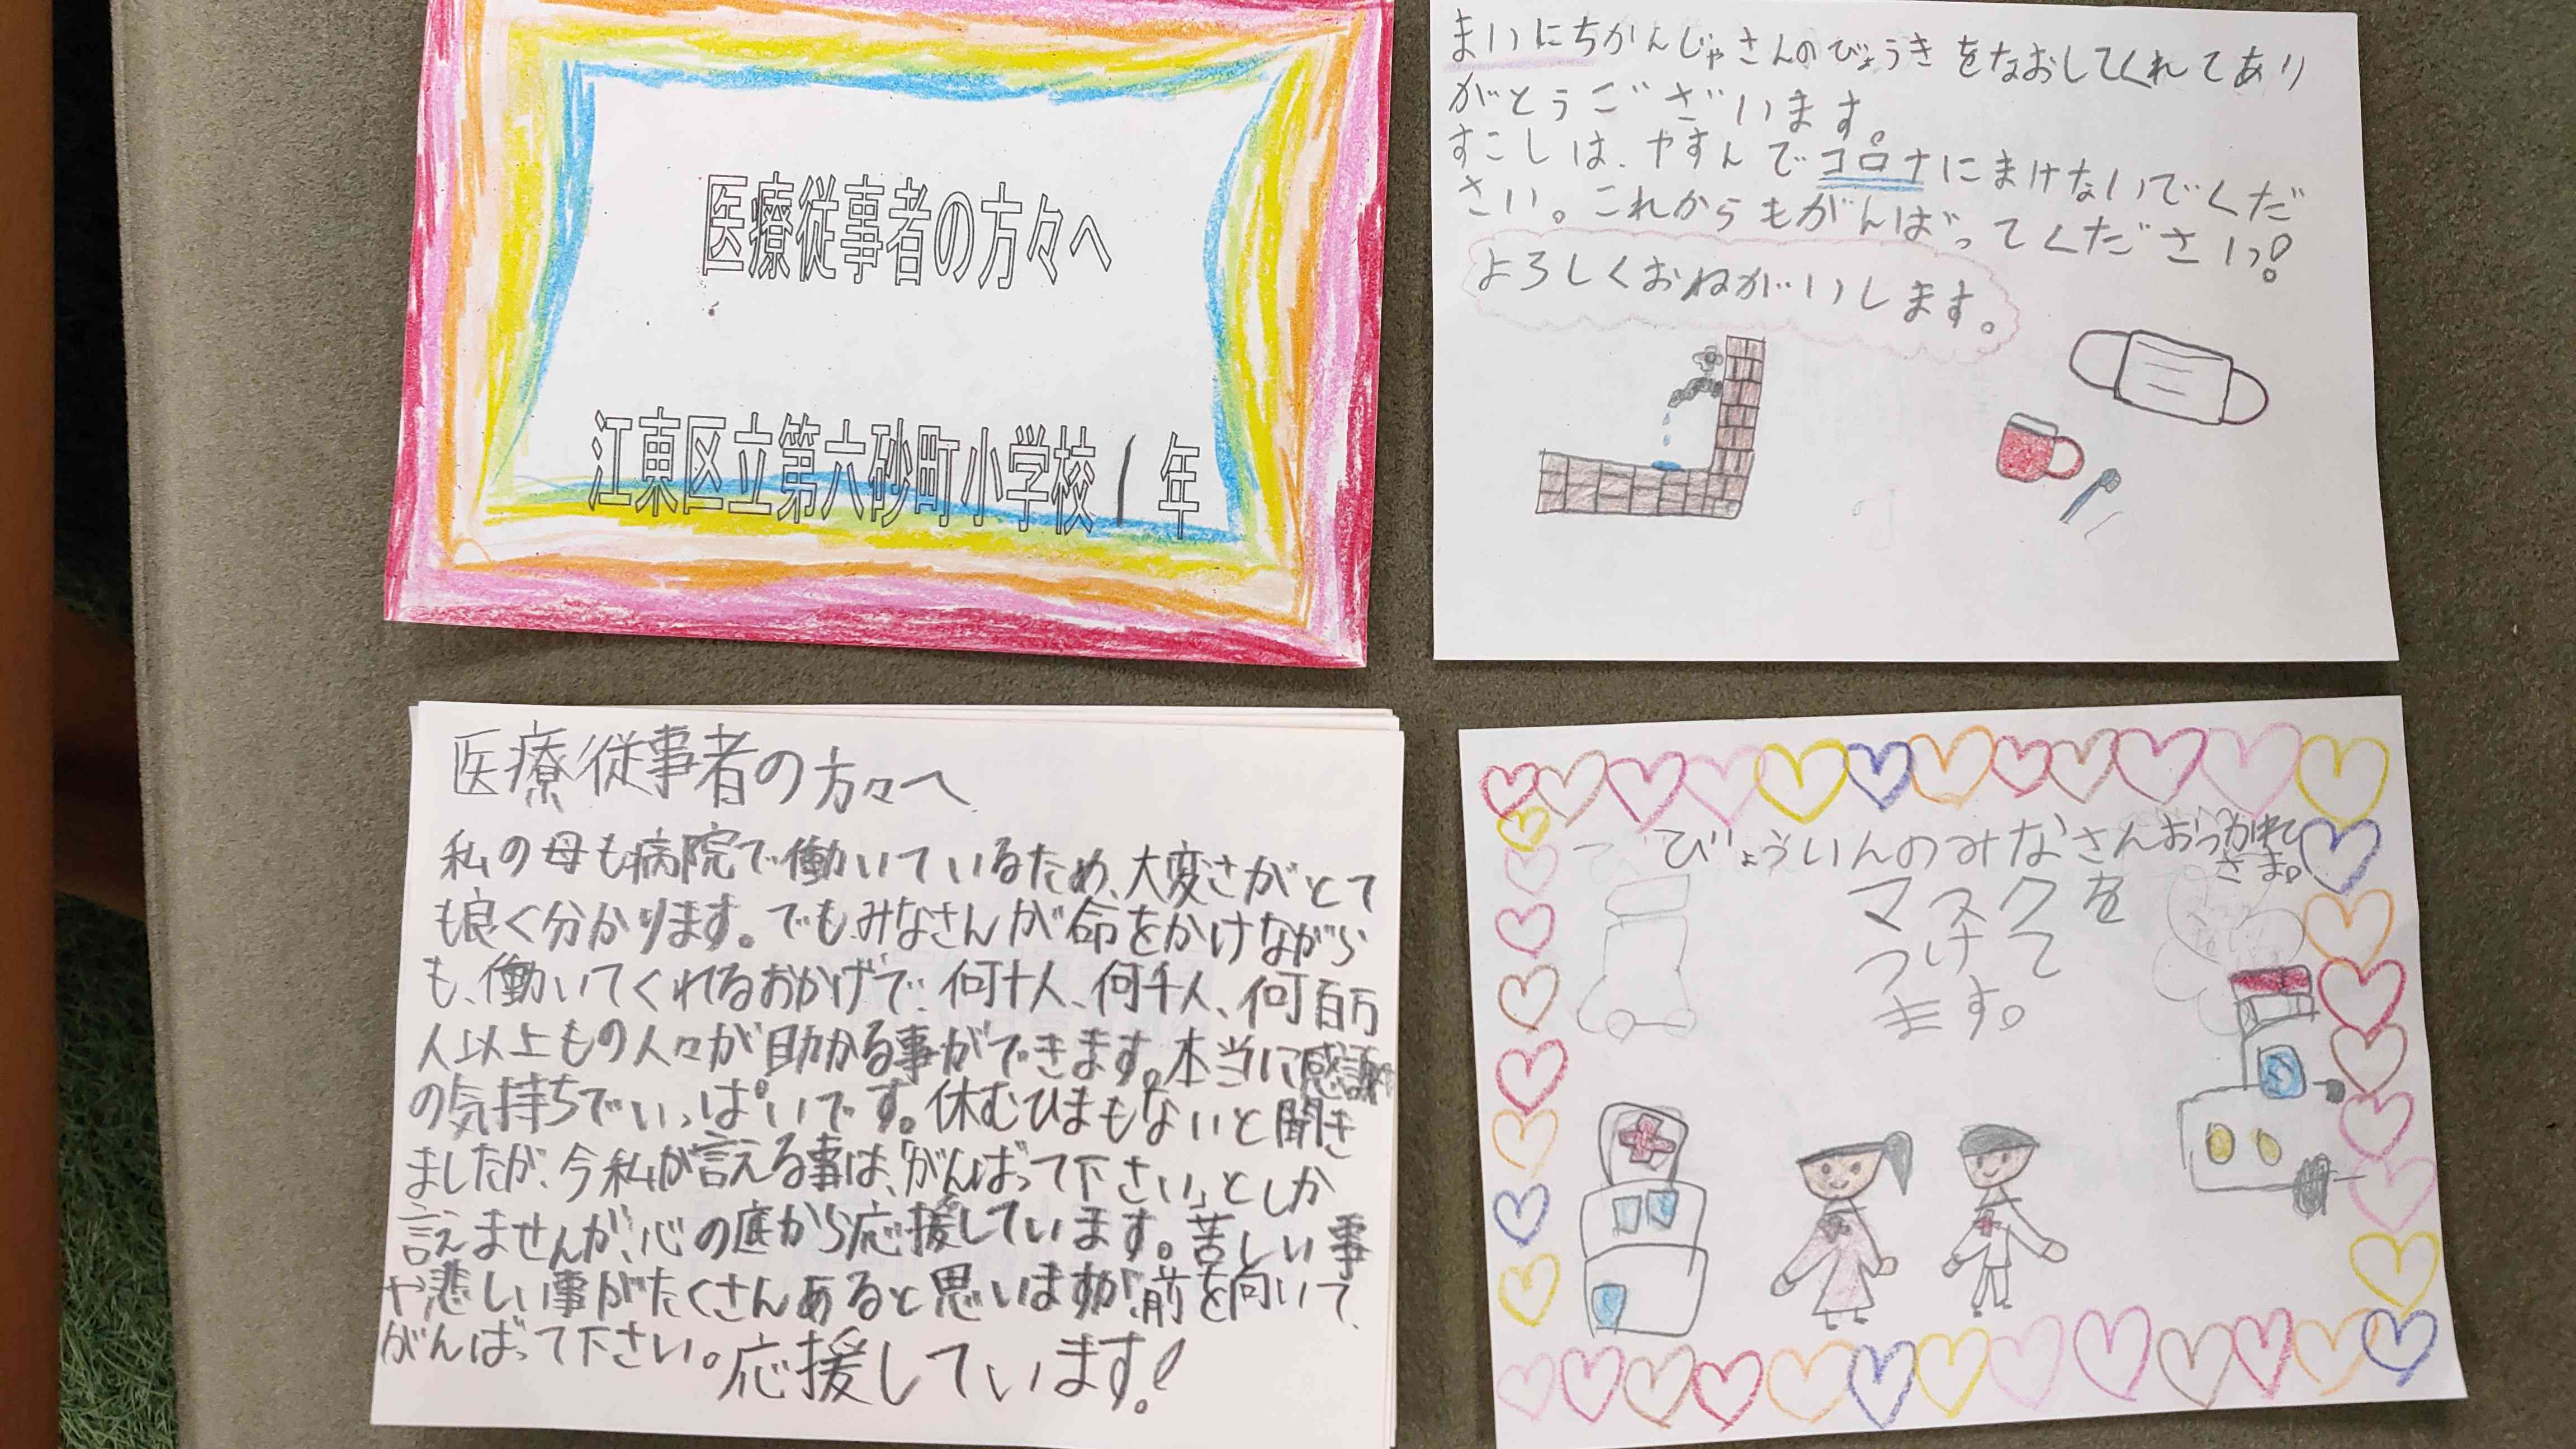 医療従事者の方々へ
江東区立第六砂町小学校1年
まいにちかんじゃさんのびょうきをなおしてくれてあり
がとうございます。
すこしは、やすんでコロナにまけないでくだ
さい。これからもがんばってくださいっ!
よろしくおねがいします。
医療従事者の方々へ
私の母も病院で働いているため、大変さがとて
も良く分かります。でもみなさんが命をかけながら
も、働いてくれるおかげで、何十人、何千人、何百万
人以上もの人々が助かる事ができます。本当に感謝
の気持ちでいっぱいです。休むひまもないと聞き
ましたが、今私が言える事は、「がんばって下さい」としか
言えませんが、心の底から応援しています。苦しい事
や悲しい事がたくさんあると思いますが、前を向いて、
がんばって下さい。応援しています!
びょういんのみなさんおつかれ
さま。
マスクを
つけて
ます。